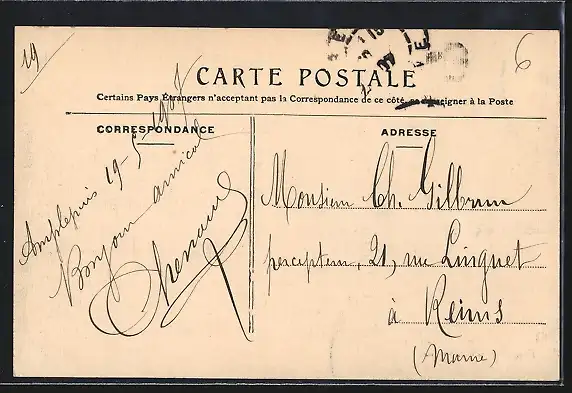 19
6
CARTE POSTALE
Certains Pays Étrangers n'acceptant pas la Correspondance de ce côté, se renseigner à la Poste
CORRESPONDANCE
Amplepuis 19-5-1907
Bonjour amical
ADRESSE
Monsieur Ch. Gilbrun
percepteur, 21, rue Linguet
à Reims
(Marne)